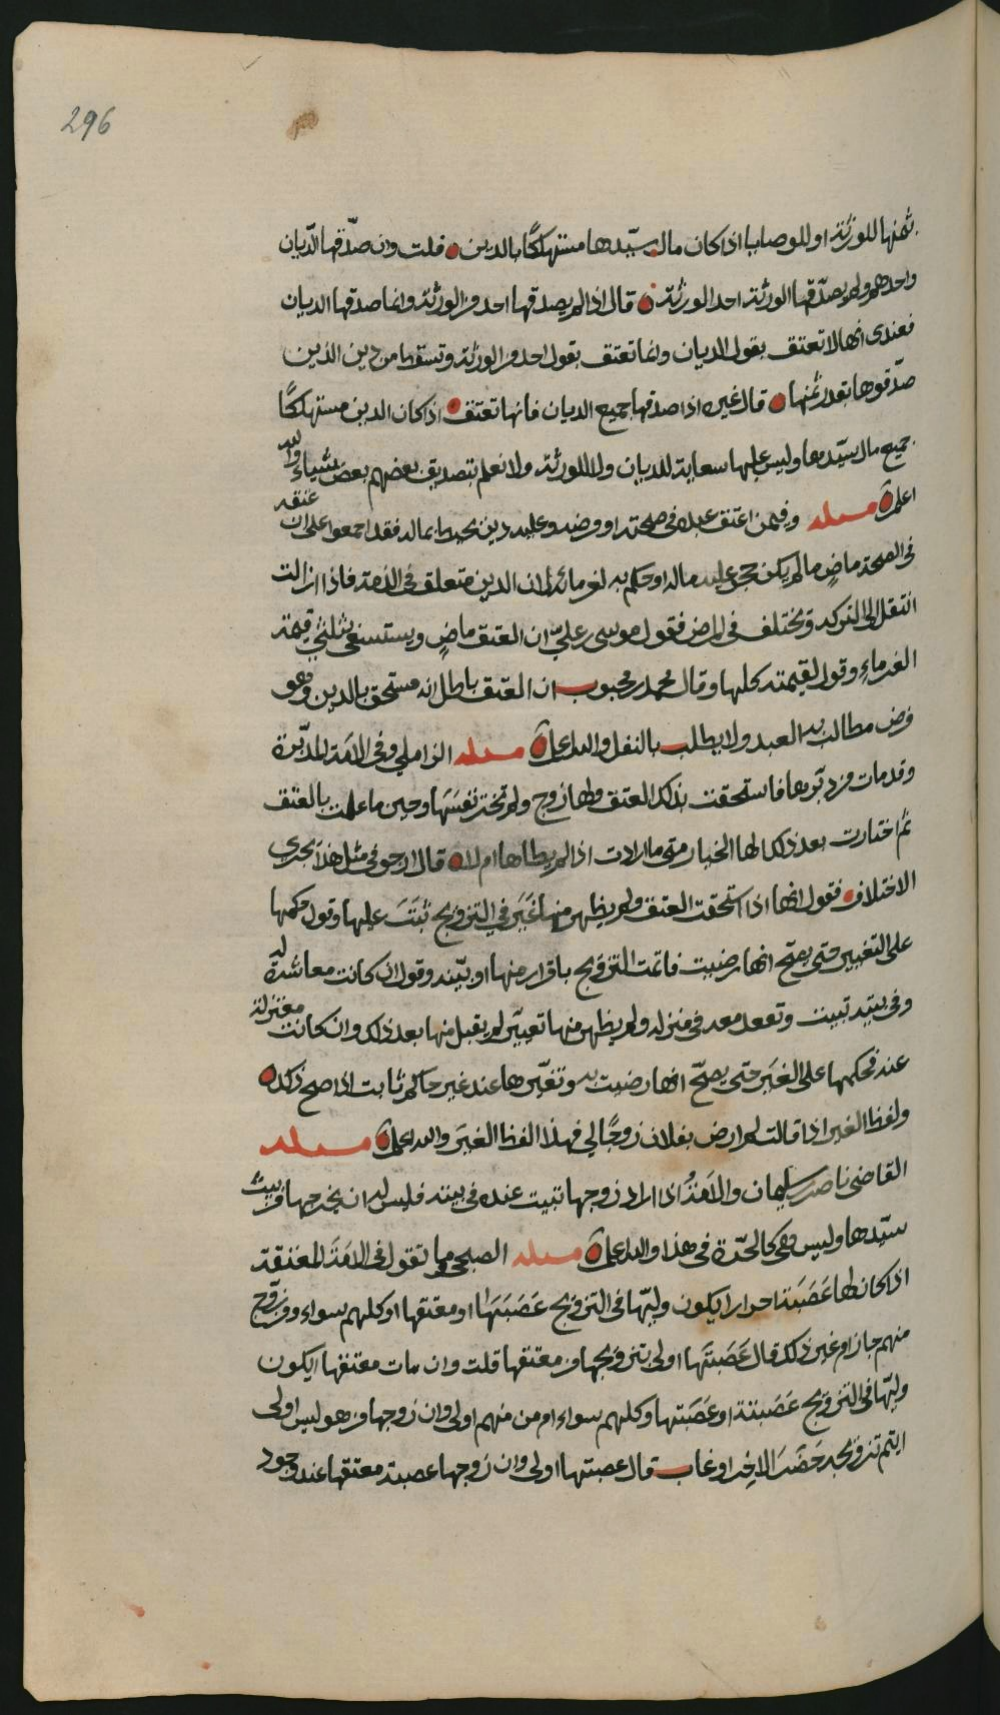 296
ثمنها للورثة او للوصايا اذا كان مال سيّدها مستهلكًا بالدين قلت وان صدّقها الدّيان
واحدهم ولم يصدّقها الورثة احد الورثة قال اذا لم يصدقها احد من الورثة وانما صدقها الديان
فعندي انها لا تعتق بقول الديان وانما تعتق بقول احد من الورثة وتسقط من دين الذين
صدّقوها بقدر ثمنها قال غيره اذا صدقها جميع الديان فانها تعتق اذا كان الدين مستهلكًا
جميع مال سيّدها وليس عليها سعاية للديان ولا للورثة ولا نعلم بتصديق بعضهم بعض شياء والله
اعلم مسئلة وفيمن اعتق عبده في صحته او مرضه وعليه دين يحيط بماله فقد اجمعوا على ان عتقه
في الصحة ماضٍ ما لم يكن حجر عليه ماله او حكم به لغرمائه لان الدين متعلق في الذمة فاذا زالت
انتقل الى التركة ويختلف في المرض فقول موسى بن عليّ ان العتق ماضٍ ويستسعى بثلثي قيمته
الغرماءِ وقول لقيمته كلها وقال محمد بن محبوب ان العتق باطل لانه مستحق بالدين وهو
فرض مطالب به العبد ولا يطلب بالنفل والله اعلم مسئلة الزاملي وفي الامة المدبّرة
وقد مات من دبّرها فاستحقت بذلك العتق ولها زوج ولم تختر نفسَهَا وحين ما علمت بالعتق
ثم اختارت بعد ذلك الها الخيار متى ما ارادت اذا لم يطاها ام لا قال ارجو في مثل هذا يجري
الاختلاف فقول انها اذا استحقت العتق ولم يظهر منها غَيَر في التزويج ثبَتَ عليها وقول حكمها
على التغيير حتى يصحّ انها رضيت فاتمت التزويج باقرار منها او بيّنه وقول ان كانت معاشرة له
وفي بيته تبيت وتقعد معه في منزله ولم يظهر منها تغيّر لم يقبل منها بعد ذلك وان كانت معتزلة
عنه فحكمها على الغيَر حتى يصحّ انها رضيت به وتغيّرها عند غير حاكم ثابت اذا صح ذلك
ولفظ الغير اذا قالت لم ارض بفلان زوجًا لي فهذا لفظ الغيَر والله اعلم مسئلة
القاضي ناصر بن سليمان والامَةُ اذا اراد زوجها تبيت عنده في بيته فليس له ان يخرجها من بيت
سيّدها وليس هي كالحرّة في هذا والله اعلم مسئلة الصبحي وما تقول في الامَة المعتقة
اذا كان لها عَصَبَة احرارا يكون وليّها في التزويج عَصَبَتَهَا او معتقها او كلهم سواء ومن زوّج
منهم جاز ام غير ذلك قال عَصَبتَها اولى بتزويجها من معتقها قلت وان مات معتقها ايكون
وليّها في التزويج عَصَبتة او عَصَبتها وكلهم سواء ام من منهم اولى وان زوجها من هو ليس اولى
ايتم تزويجه حَضَرَ الاخر او غاب قال عصبتها اولى وان زوجها عصبة معتقها عند وجود